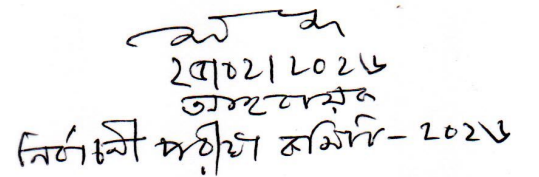 ২৫/০২/২০২৬
আহবায়ক
নির্বাচনী পরীক্ষা কমিটি-২০২৬